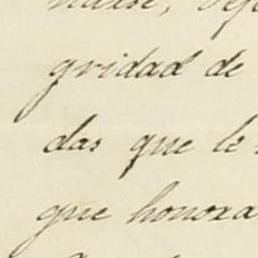 gridad de
das que le
que honora